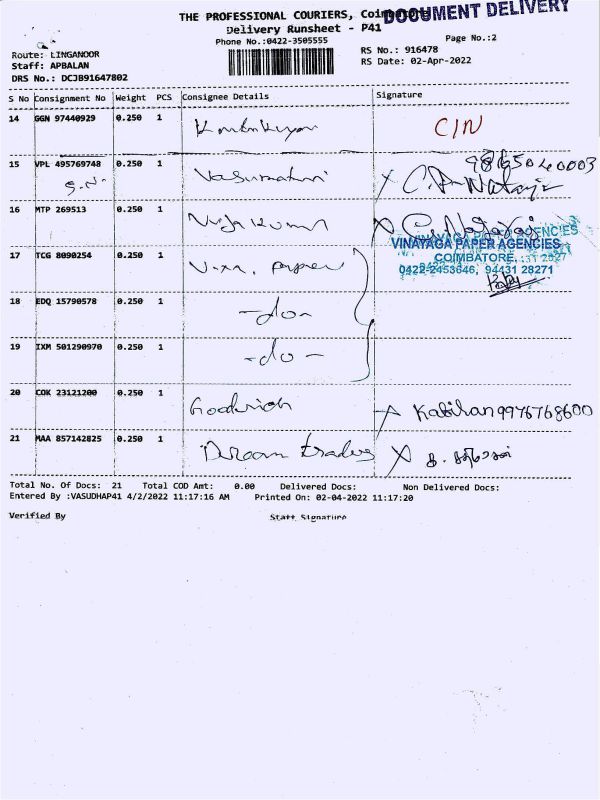 THE PROFESSIONAL COURIERS, Coimbatore
DOCUMENT DELIVERY
Delivery Runsheet - P41
Phone No.:0422-3505555
Page No.:2
Route: LINGANOOR
RS No.: 916478
Staff: APBALAN
RS Date: 02-Apr-2022
DRS No.: DCJB91647802
S No Consignment No Weight PCS Consignee Details Signature
14 GGN 97440929 0.250 1 CIN
15 VPL 495769748 0.250 1 Vasumathi
S.N.
16 MTP 269513 0.250 1 Vijikumar
VINAYAGA PAPER AGENCIES
COIMBATORE.
0422-2453646, 94431 28271
17 TCG 8090254 0.250 1 paper
18 EDQ 15790578 0.250 1 -do-
19 IXM 501290970 0.250 1 -do-
20 COK 23121200 0.250 1 Goodrich X Kabilan 9976768600
21 MAA 857142825 0.250 1 traders X
Total No. Of Docs: 21 Total COD Amt: 0.00 Delivered Docs: Non Delivered Docs:
Entered By :VASUDHAP41 4/2/2022 11:17:16 AM Printed On: 02-04-2022 11:17:20
Verified By Staff Signature